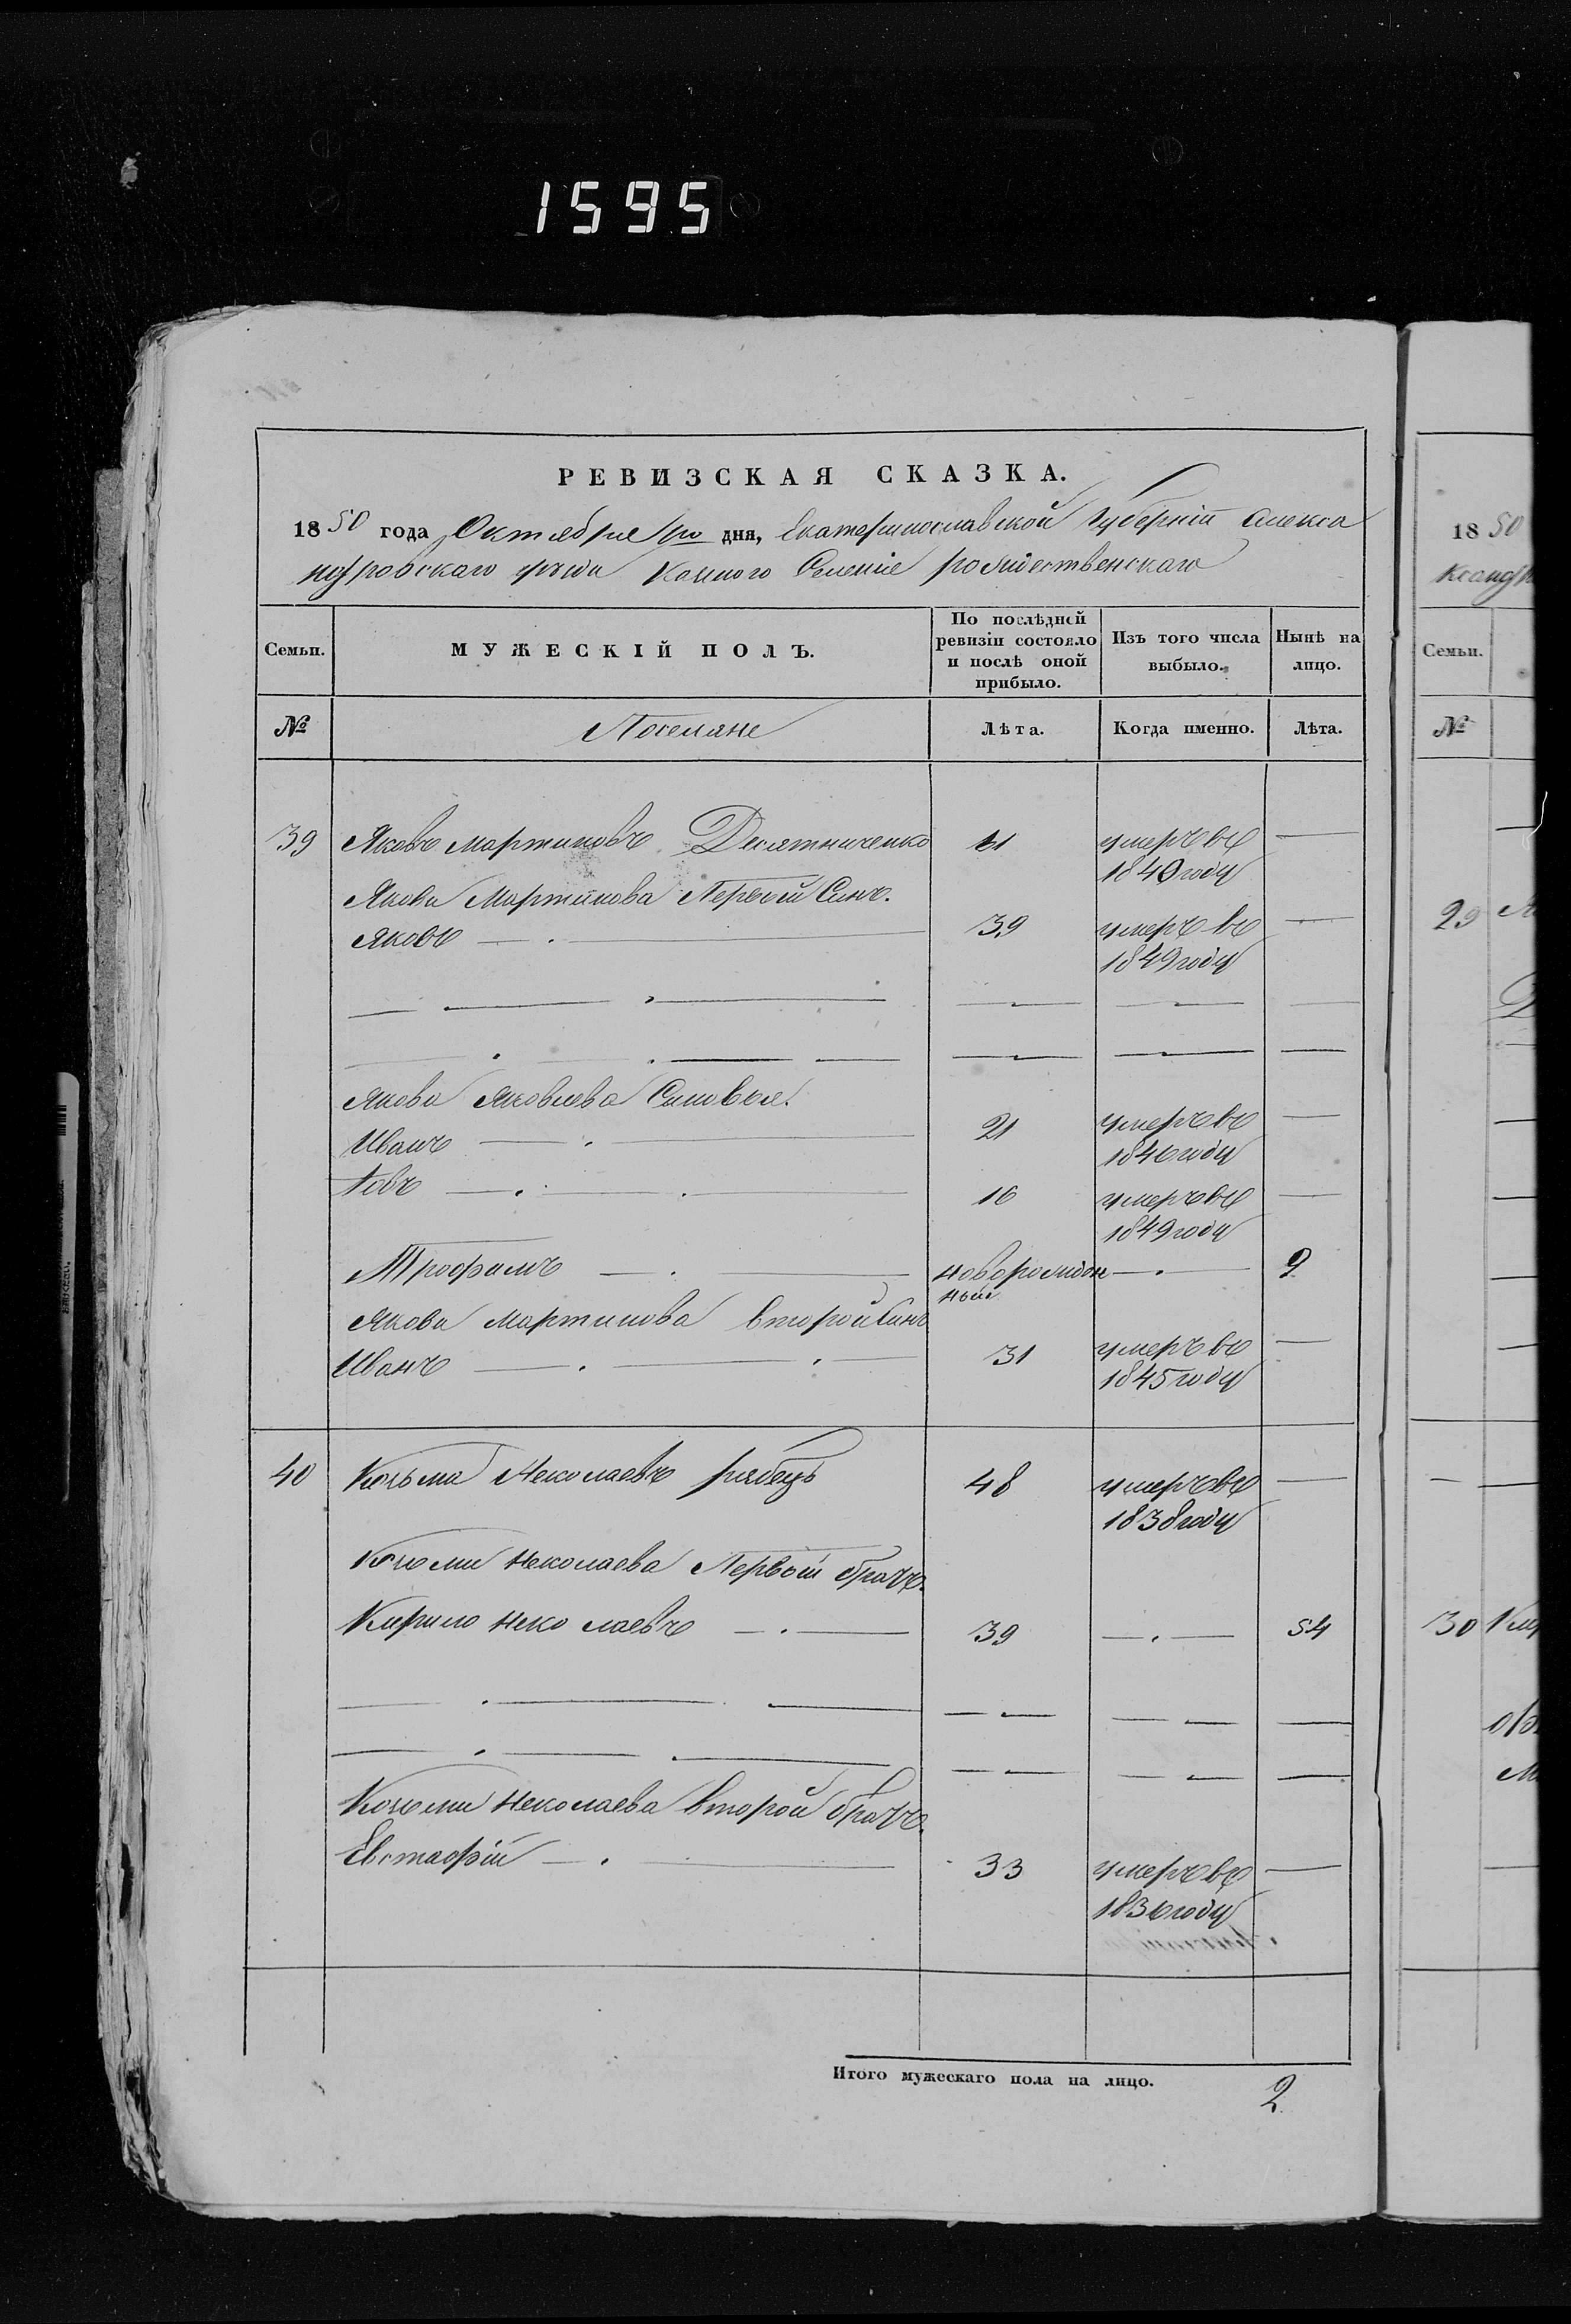 1595
РЕВИЗСКАЯ СКАЗКА.
1850 года Октября дня, Екатеринославской Губерніи Алекса
ндровскаго уезда Селеніе рождественскаго
Семьи.
МУЖЕСКІЙ ПОЛЪ.
По послѣдней ревизіи состояло и послѣ оной прибыло.
Изъ того числа выбыло.
Нынѣ на лицо.
№
Поселяне
Лѣта.
Когда именно.
Лѣта.
39 Яковъ Мартиновъ Десятниченко 61 умеръ въ —
1840 году
Якова Мартинова Первой Синъ.
Яковъ — 39 умеръ въ —
1849 году
Якова Яковлева Синовья.
Иванъ — 21 умеръ въ —
1846 году
Іовъ — 16 умеръ въ —
1849 году
Трофимъ — новорожден — 9
ный
Якова Мартинова второй Синъ
Иванъ — 31 умеръ въ —
1845 году
40 Козьма Неколаевъ рябецъ 48 умеръ въ —
1838 году
Козьми Неколаева Первой братъ.
Кирило Неколаевъ — 39 — 54
Козьми Неколаева второй братъ.
Евстафій — 33 умеръ въ —
1836 году
Итого мужескаго пола на лицо. 2
1850
Семьи.
№
29
30